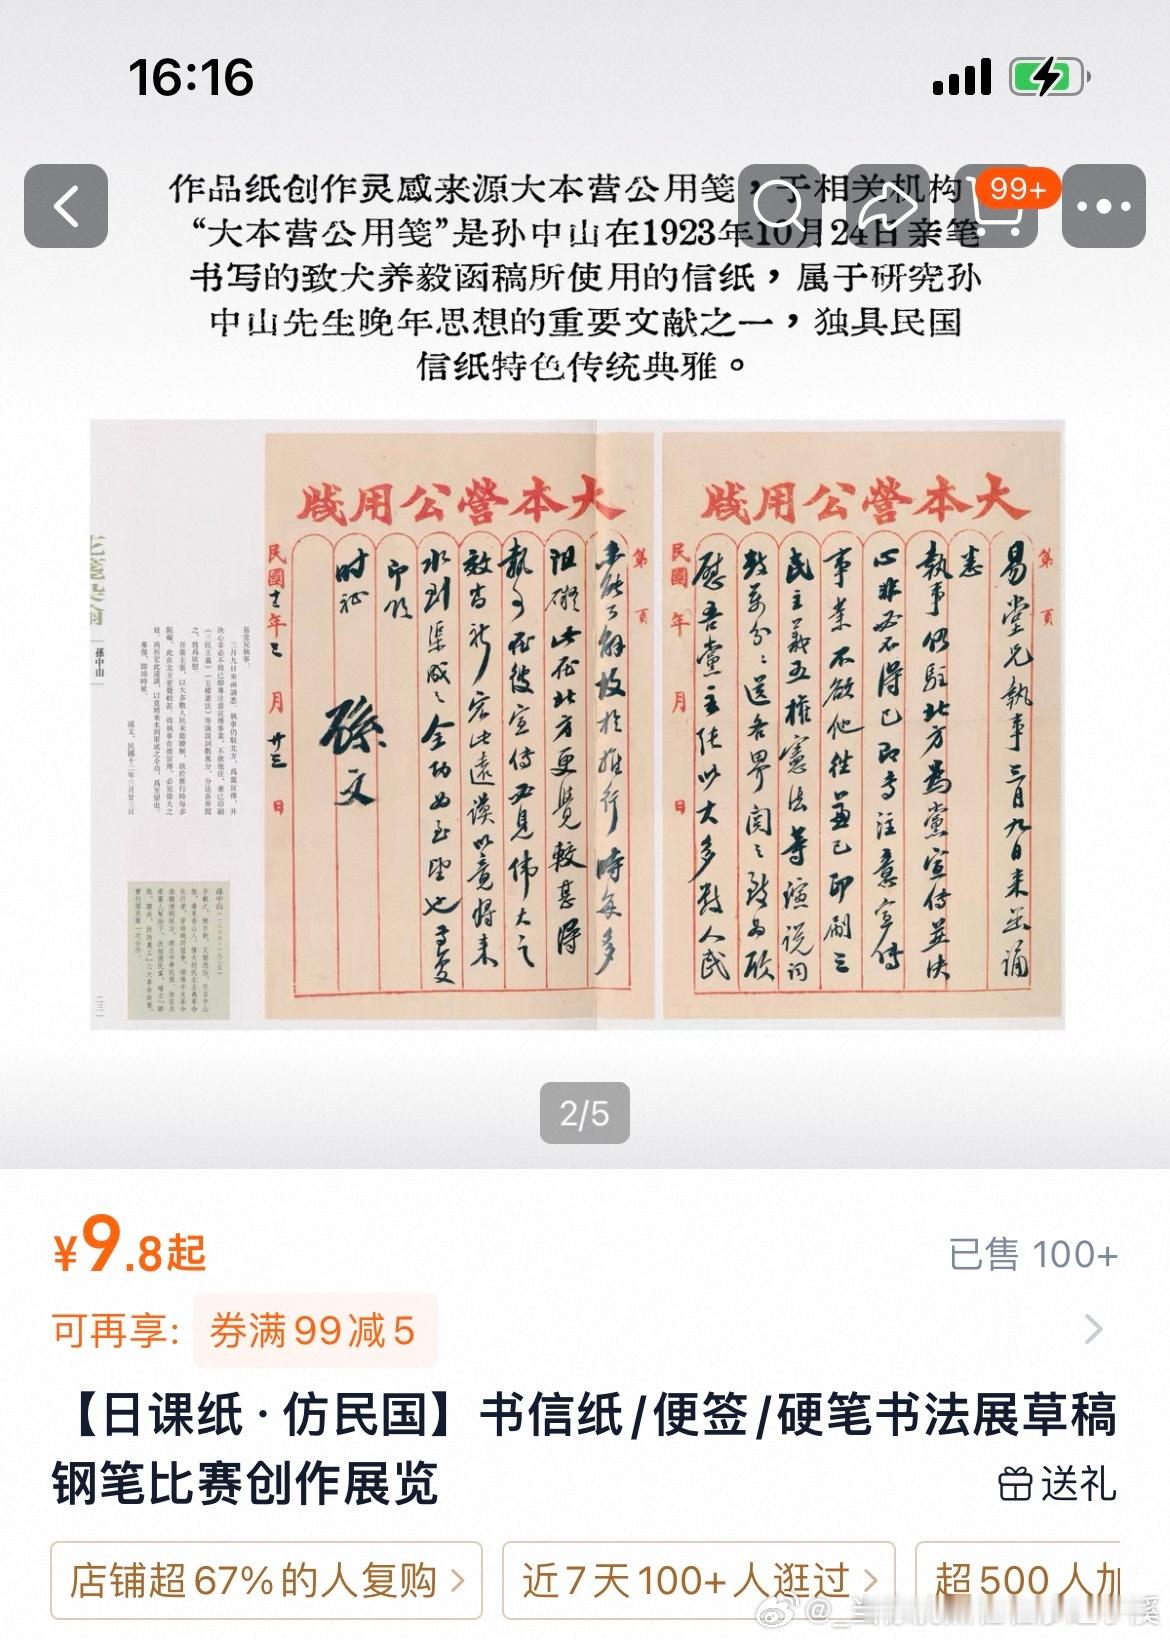 16:16
作品纸创作灵感来源大本营公用笺，于相关机构
99+
“大本营公用笺”是孙中山在1923年10月24日亲笔
书写的致犬养毅函稿所使用的信纸，属于研究孙
中山先生晚年思想的重要文献之一，独具民国
信纸特色传统典雅。
大本營公用牋
第 頁
易堂兄執事三月九日来函誦
悉
執事仍駐北方為黨宣傳並决
心非必不得已即专注意宣傳
事業不欲他往並已印刷三
民主義五權憲法等演説词
数萬分〻送各界閲〻致為欣
慰吾黨主张以大多数人民
民國 年 月 日
大本營公用牋
第 頁
未能了解故於推行時每多
阻礙此在北方更覺較甚得
執事在彼宣傳必見偉大之
效尚祈宏此遠謨以竟将来
水到渠成之全功为至望也专复
即颂
时祉
孫文
民國十二年三月廿三日
孫中山
2/5
¥9.8起
已售 100+
可再享: 券满99减5
【日课纸·仿民国】书信纸/便签/硬笔书法展草稿
钢笔比赛创作展览
送礼
店铺超67%的人复购
近7天100+人逛过
超500人加